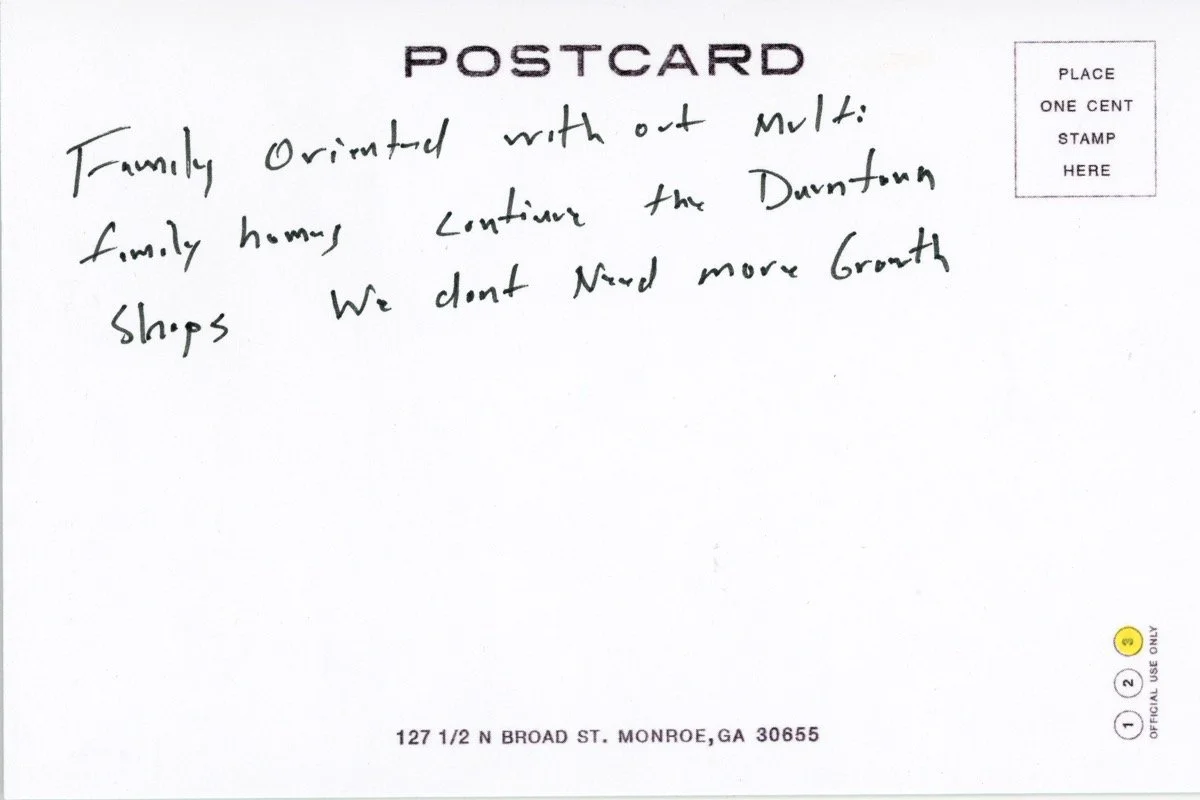 POSTCARD
PLACE
ONE CENT
STAMP
HERE
Family Oriented with out Multi
family homes continue the Downtown
Shops We dont Need more Growth
127 1/2 N BROAD ST. MONROE,GA 30655
1 2 3
OFFICIAL USE ONLY